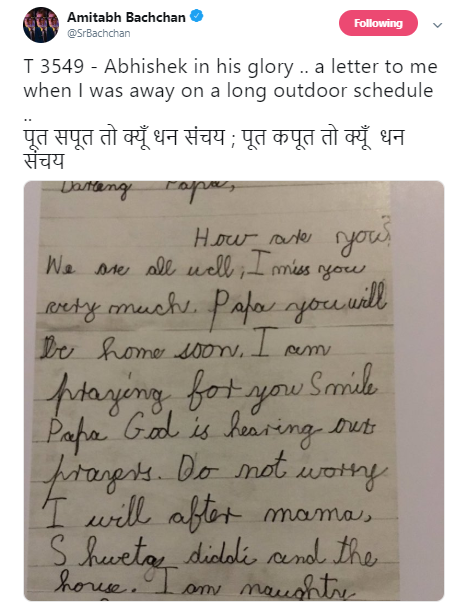 Amitabh Bachchan
@SrBachchan
Following
T 3549 - Abhishek in his glory .. a letter to me
when I was away on a long outdoor schedule
..
पूत सपूत तो क्यूँ धन संचय ; पूत कपूत तो क्यूँ  धन
संचय
Darleng Papa,
How are you?
We are all well, I miss you
very much. Papa you will
be home soon. I am
praying for you Smile
Papa God is hearing our
prayers. Do not worry
I will after mama,
Shweta diddi and the
house. I am naughty